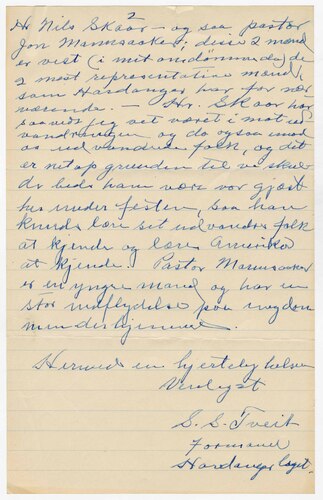 2
Hr Nils Skaar – og saa pastor
Jon Mannsaaker; disse 2 mænd
er vist (i mit omdømme) de
2 mest representative mænd,
som Hardanger har for nær
værende. – Hr. Skaar har
saavidt jeg vet været i mot ud
vandringen og da ogsaa imod
os udvandrede folk, og dit
er netop grunden til vi skul
de bede ham være vor gjæst
her under festen, saa han
kunde lære sit udvandre folk
at kjende og lære Amerika
at kjende. Pastor Mannsaaker
er en yngre mand og har en
stor indflydelse paa ungdom
men der hjemme.
Hermed en hjertelig helsen
Venligst
S. S. Tveit
Formand
Hardanger laget.